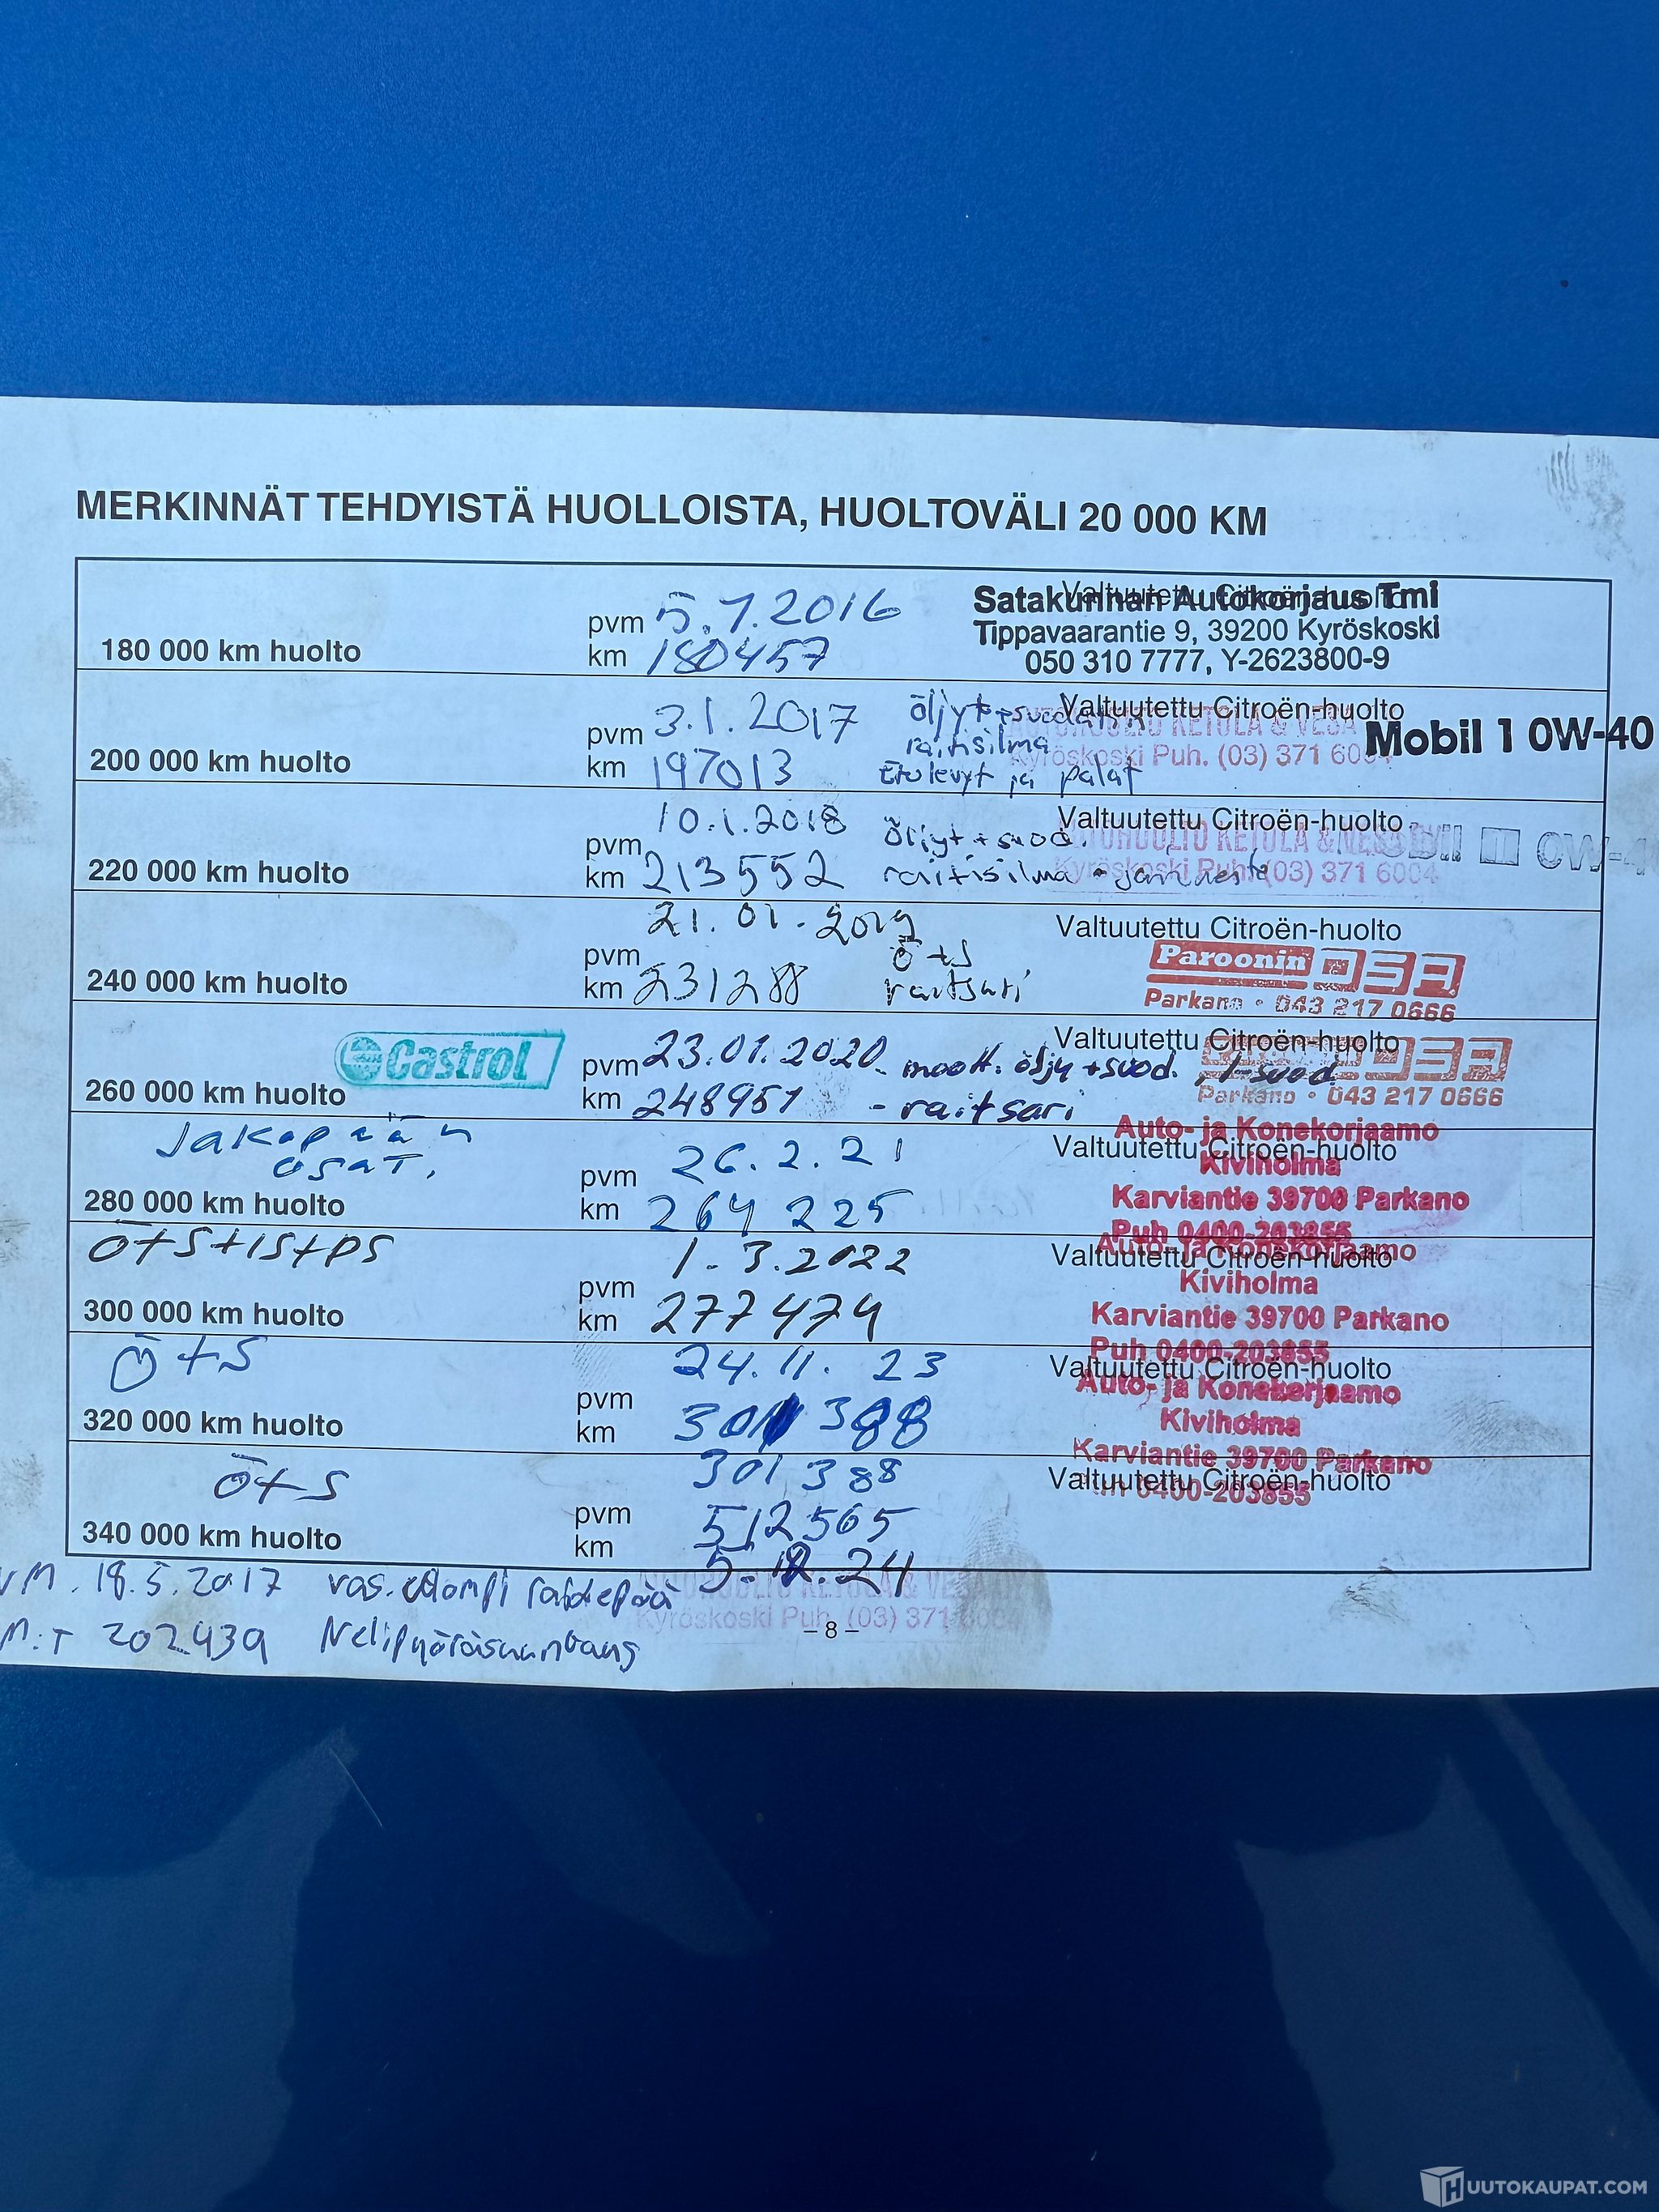 MERKINNÄT TEHDYISTÄ HUOLLOISTA, HUOLTOVÄLI 20 000 KM
180 000 km huolto
pvm 5.7.2016
km 180457
Valtuutettu Citroën-huolto
Satakunnan Autokorjaus Tmi
Tippavaarantie 9, 39200 Kyröskoski
050 310 7777, Y-2623800-9
200 000 km huolto
pvm 3.1.2017
km 197013
öljyt+suodatin
raitisilma
Etulevyt ja palat
Valtuutettu Citroën-huolto
AUTOHUOLTO KETOLA & VESA
Kyröskoski Puh. (03) 371 6004
Mobil 1 0W-40
220 000 km huolto
pvm 10.1.2018
km 213552
Öljyt + suod.
raitisilma + jarruneste
Valtuutettu Citroën-huolto
AUTOHUOLTO KETOLA &
Kyröskoski Puh. (03) 371 6004
0W-4
240 000 km huolto
pvm 21.01.2019
km 231288
ö+s
raitsari
Valtuutettu Citroën-huolto
Paroonin OSA
Parkano • 043 217 0666
260 000 km huolto
Castrol
pvm 23.01.2020
km 248951
- moott. öljy + suod., i-suod.
- raitsari
Valtuutettu Citroën-huolto
OSA
Parkano • 043 217 0666
Jakopään
osat.
280 000 km huolto
pvm 26.2.21
km 264 225
Valtuutettu Citroën-huolto
Auto- ja Konekorjaamo
Kiviholma
Karviantie 39700 Parkano
Puh 0400-203855
Ö+S+IS+PS
300 000 km huolto
pvm 1.3.2022
km 277474
Valtuutettu Citroën-huolto
Auto- ja Konekorjaamo
Kiviholma
Karviantie 39700 Parkano
Puh 0400-203855
Ö+S
320 000 km huolto
pvm 24.11.23
km 301 388
301388
Valtuutettu Citroën-huolto
Auto- ja Konekorjaamo
Kiviholma
Karviantie 39700 Parkano
Puh 0400-203855
Ö+S
340 000 km huolto
pvm 512565
km 5.12.24
Valtuutettu Citroën-huolto
18.5.2017 vas. raidepää
202439 Nelipyöräsuuntaus
Kyröskoski Puh. (03) 371 6004
– 8 –
HUUTOKAUPAT.COM